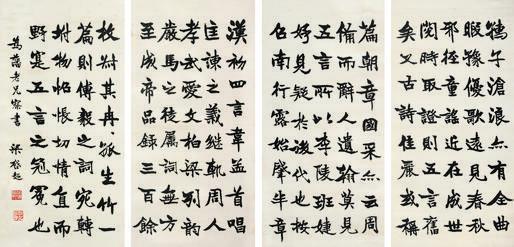 漢初四言韋孟首唱
匡諫之義継軌周人
孝武愛文柏梁列韵
嚴馬之徒屬詞無方
至成帝品錄三百餘
篇朝章國采亦云周
備而辭人遺翰莫見
五言所以李陵班婕
妤見疑於後代也按
召南行露始肇半章
孺子滄浪亦有全曲
暇豫優歌遠見春秋
邪徑童謠近在成世
閱時取證則五言舊
矣又古詩佳麗或稱
枚叔其冉冉孤生竹一
篇則傅毅之詞宛轉
附物怊悵切情直而
野寔五言之冠冕也
老兄察書 梁啟超